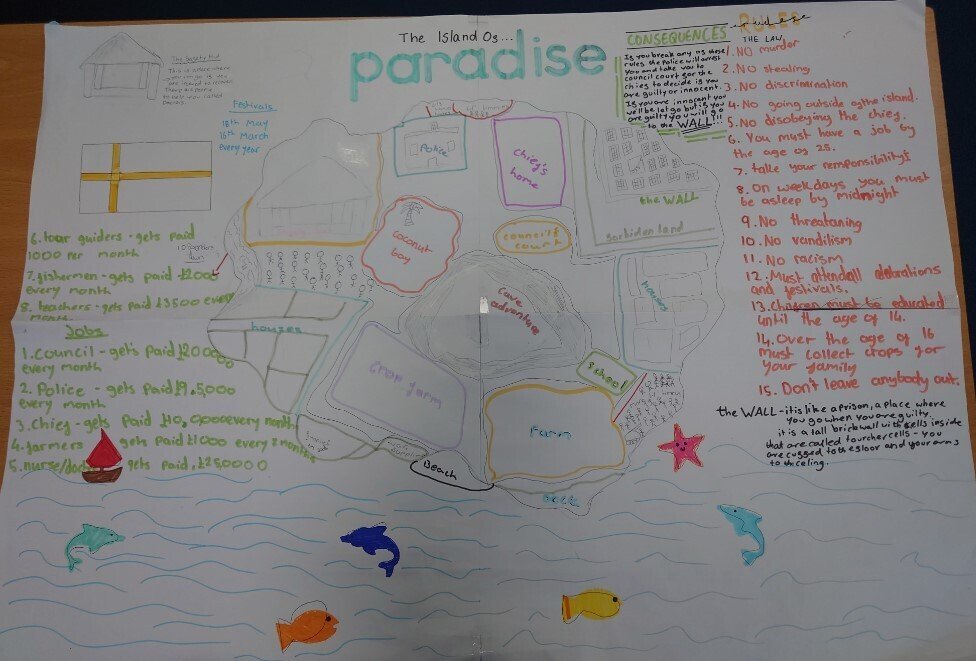 The Island Os...
paradise
The Sagety Hut
This is a place where
Festivals
18th May
16th March
every year
6. tour guiders - gets paid
1000 per month
7. fishermen - gets paid £2000
every month
8. teachers - gets paid £3500 every
month
Jobs
1. Council - gets paid £20000
every month
2. Police - gets paid £9,5000
every month
3. Chieg - gets paid £10,0000 every month
4. farmers gets paid £1000 every 2 months
5. nurse/doc gets paid, £25,0000
Police
Chieg's
home
the WALL
forbiden land
coconut
bay
council &
court
Cave
adventure
houses
houses
Crop farm
School
Farm
Beach
CONSEQUENCES
Is you break any os these
rules the police will arrest
you and take you to
council court for the
chieg to decide is you
are guilty or innocent.
Is you are innocent you
will be let go but is you
are guilty you will go
to the WALL!!!
RULES
THE LAW
1. NO murder
2. NO stealing
3. NO discrimination
4. NO going outside of the island.
5. No disobeying the chieg.
6. You must have a job by
the age os 25.
7. take your remponsibility
8. On weekdays you must
be asleep by midnight
9. No threataning
10. No vandilism
11. No racism
12. Must attend all celebrations
and festivals.
13. Chidren must be educated
until the age of 14.
14. Over the age of 16
must collect crops for
your family
15. Don't leave anybody out.
the WALL - it is like a prison, a place where
you go when you are guilty.
it is a tall brick wall with sells inside
that are called tourcher cells - you
are cugged to the sloor and your arms
to the celing.